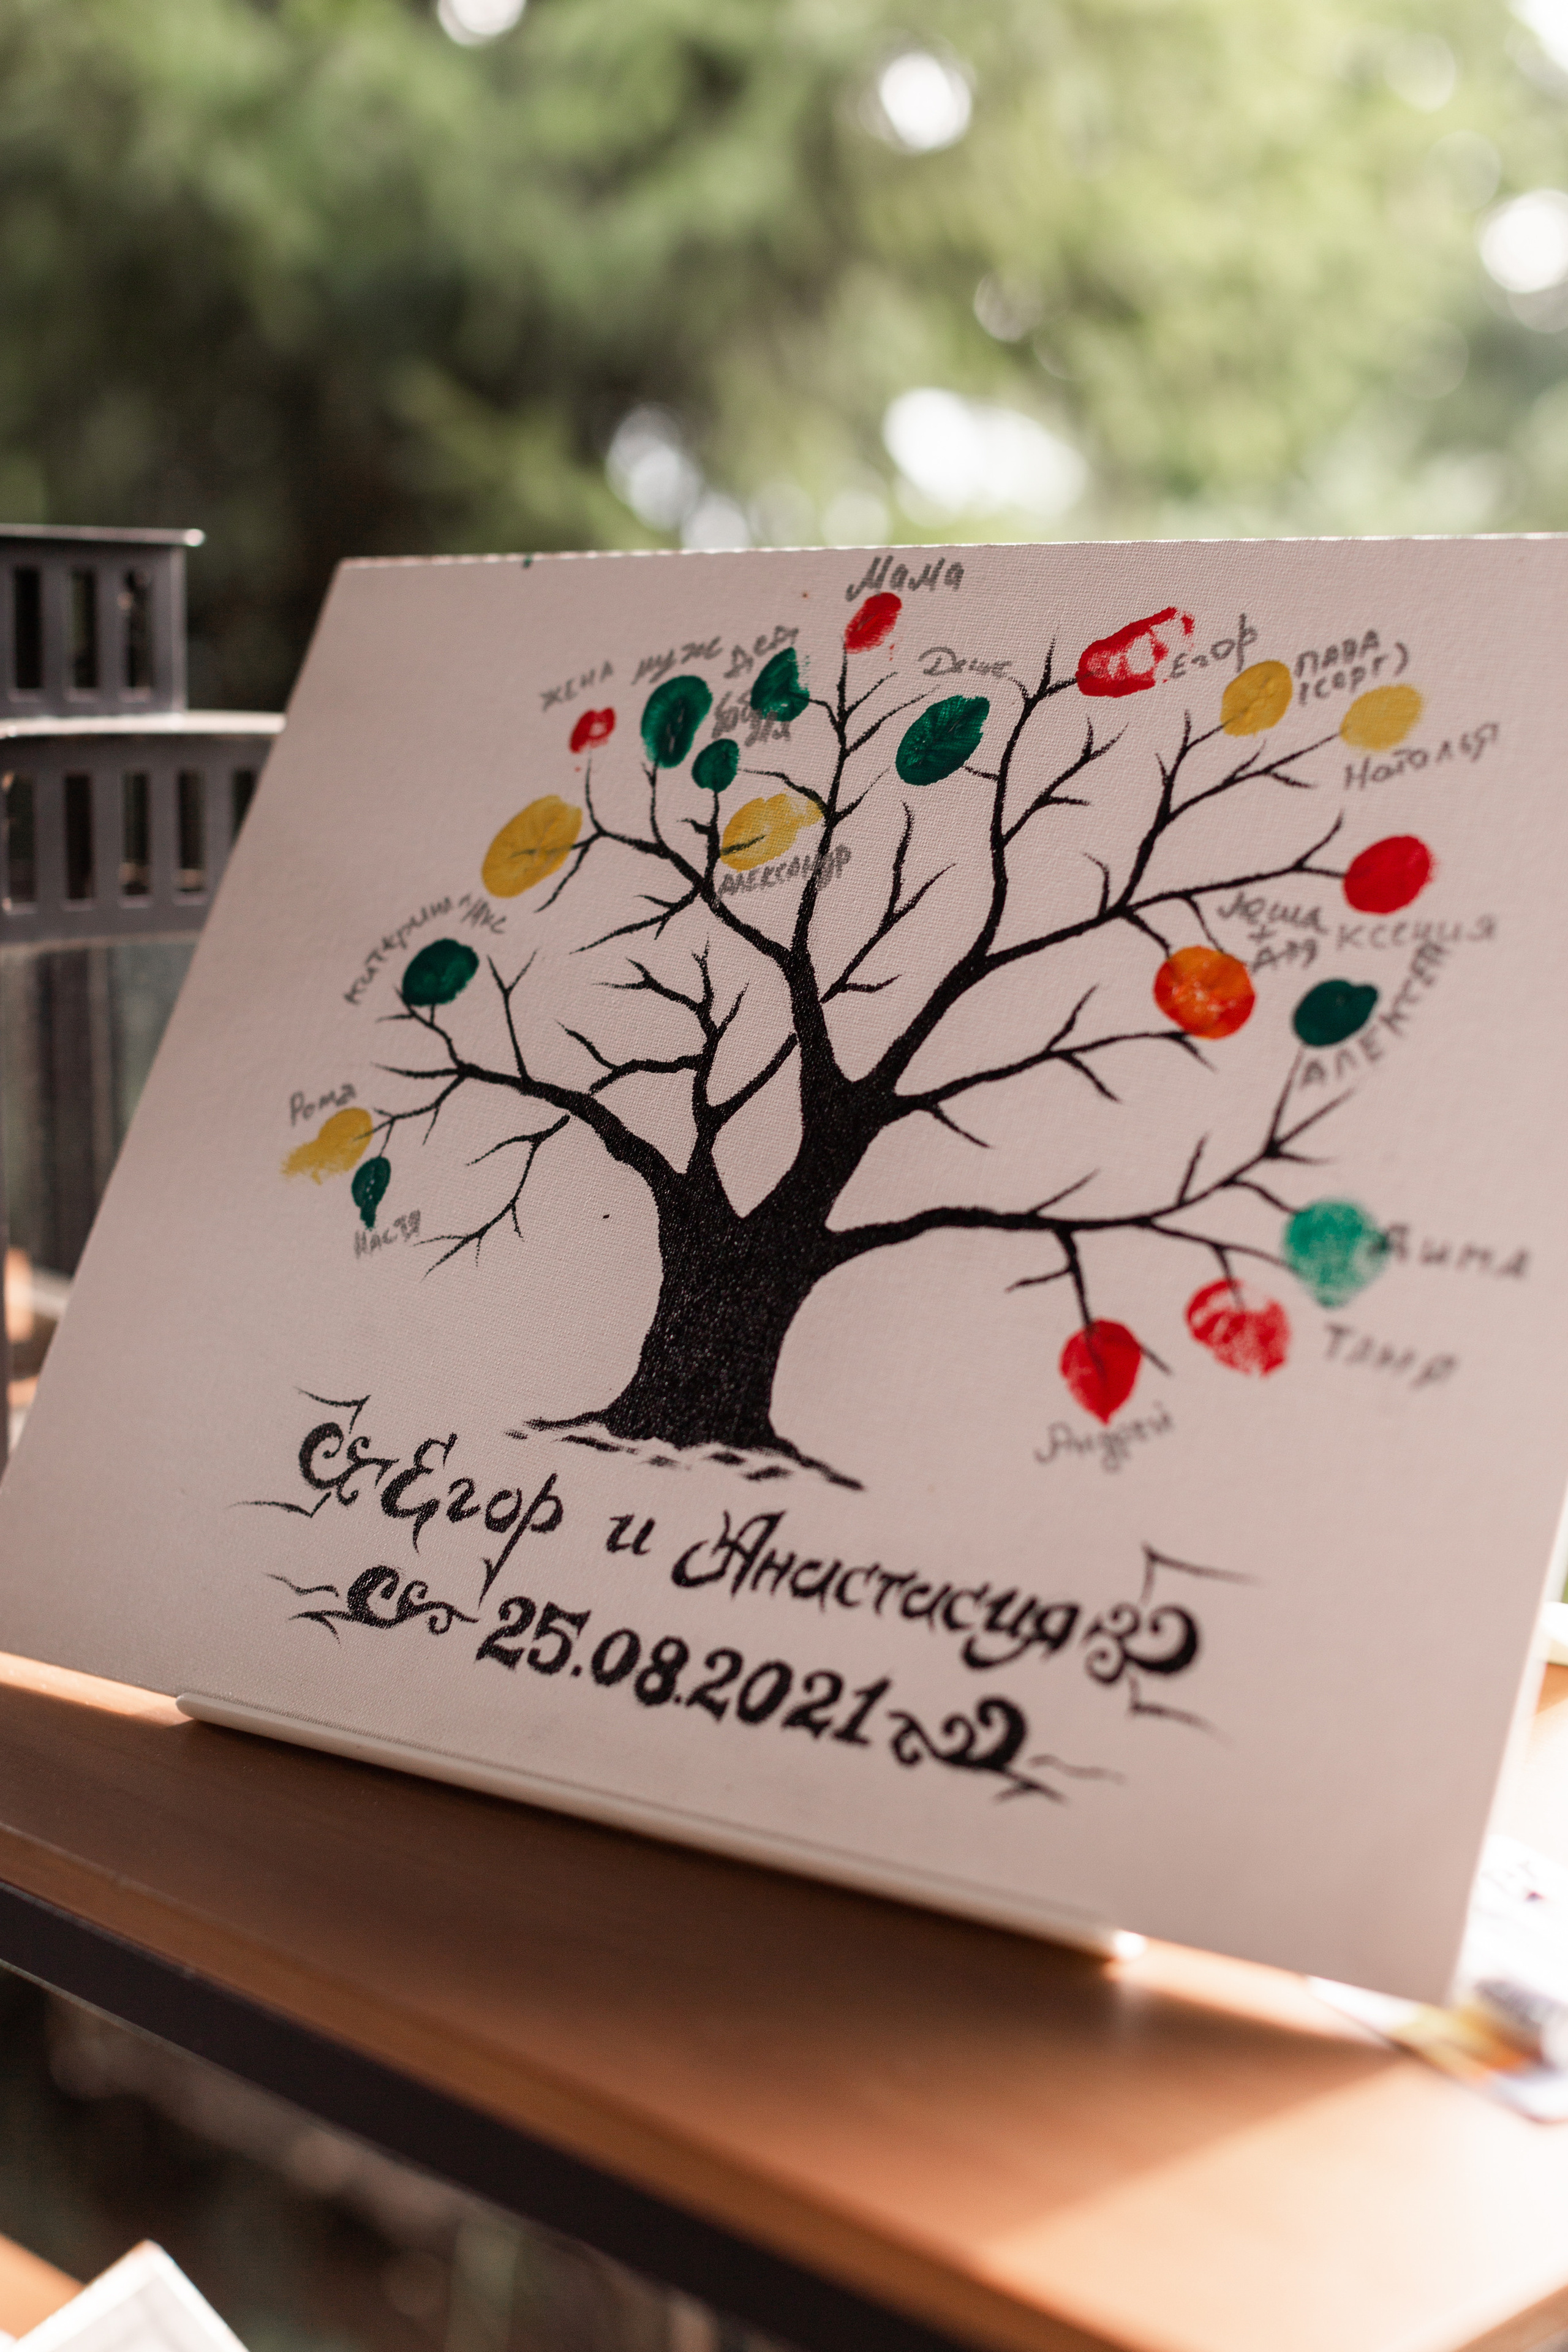 Мама
ЖЕНА
муж
Дед
ЕГОР
ПАПА
Наталья
АЛЕКСАНДР
Лёша
+
Аля
КСЕНИЯ
АЛЕКСЕЙ
Рома
НАСТЯ
Дима
ТАНЯ
Андрей
Егор и Анастасия
25.08.2021